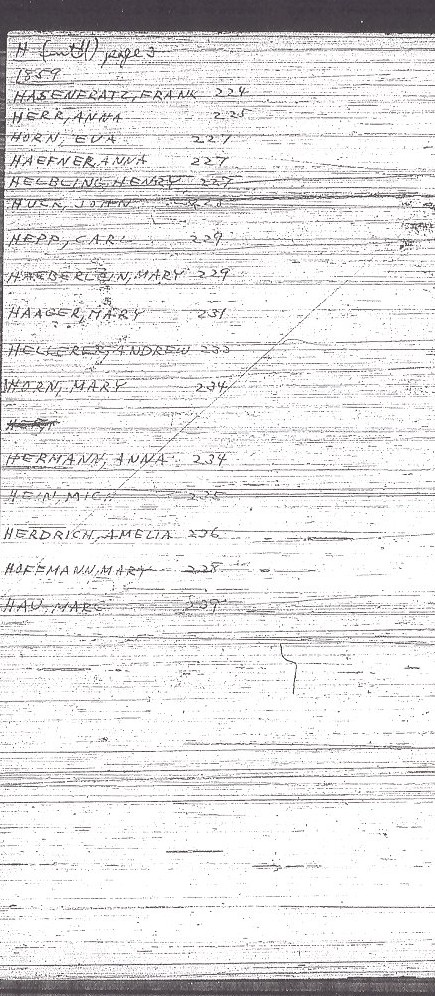 H (cont'd) page 3
1859
HASENFRATZ, FRANK 224
HERR, ANNA 225
HORN, EVA 227
HAEFNER, ANNA 227
HELBLING, HENRY 227
HUCK, JOHN
HEPP, CARL 229
HAEBERLEIN, MARY 229
HAAGER, MARY 231
HELLERER, ANDREW 233
HORN, MARY 234
HERMANN, ANNA 234
HEIN, MICH 235
HERDRICH, AMELIA 236
HOFFMANN, MARY 238
HAU, MARG 239